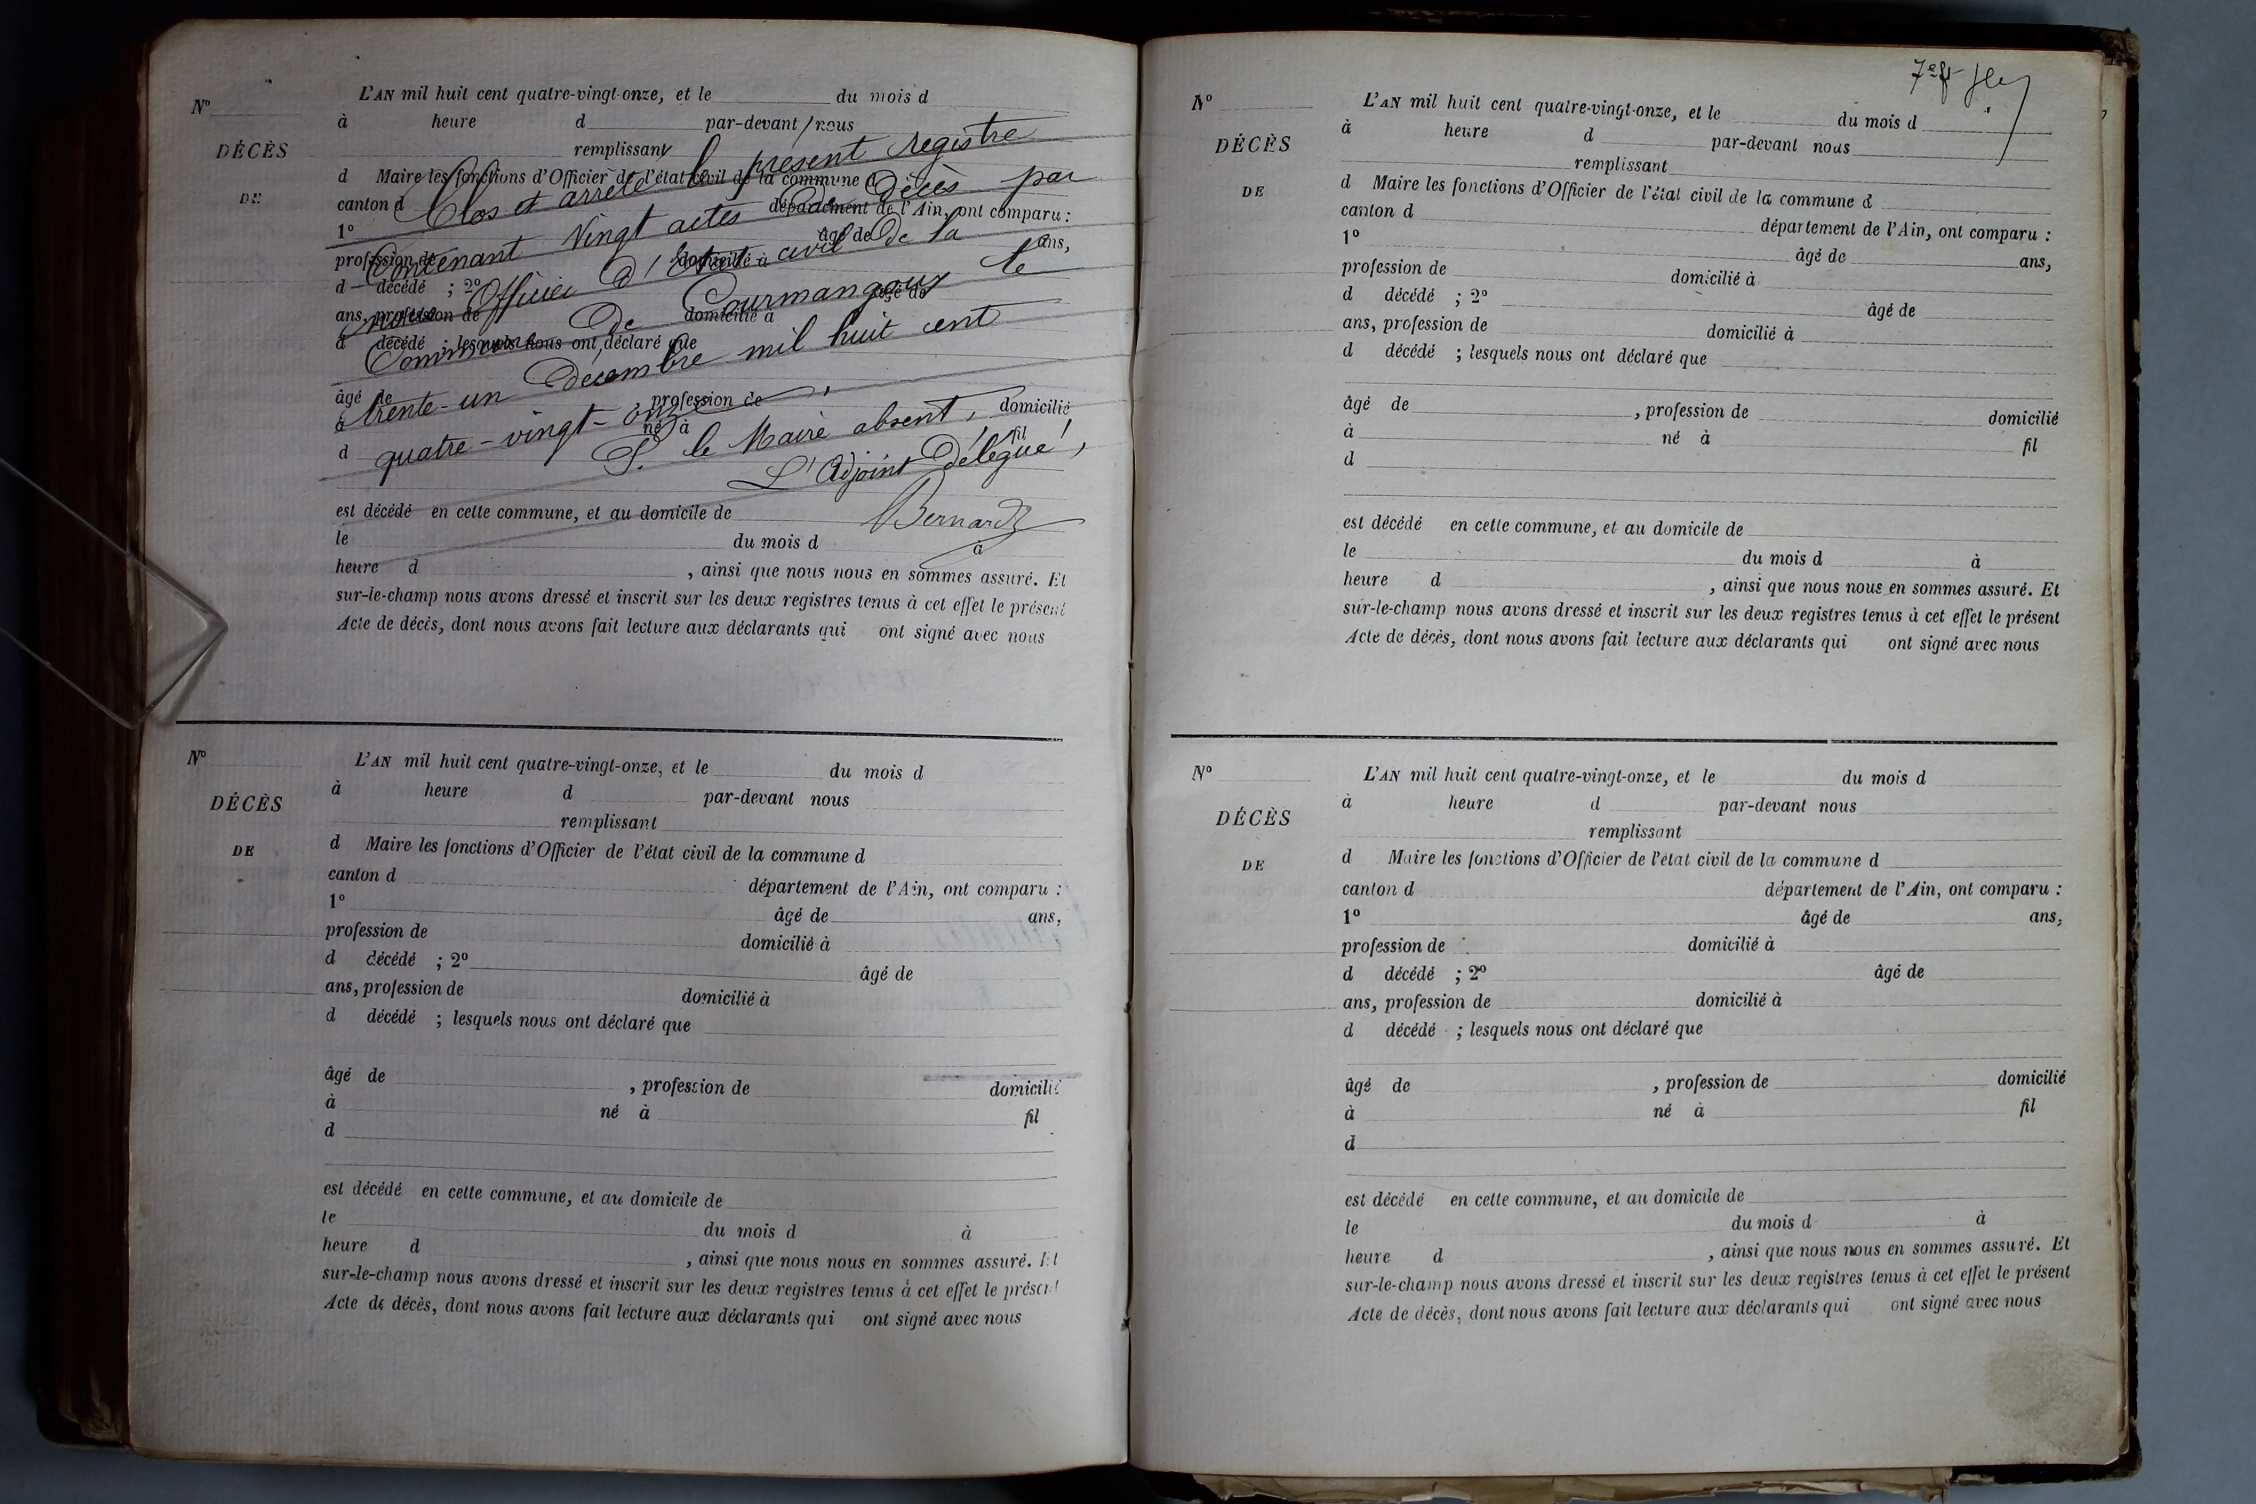 Nº
DÉCÈS
DE
L'AN mil huit cent quatre-vingt-onze, et le du mois d
à heure d par-devant nous
remplissant
d Maire les fonctions d'Officier de l'état civil de la commune d
canton d département de l'Ain, ont comparu :
1º âgé de ans,
profession de domicilié à
d décédé ; 2º âgé de
ans, profession de domicilié à
d décédé ; lesquels nous ont déclaré que
âgé de , profession de domicilié
à né à fil
d
est décédé en cette commune, et au domicile de
le du mois d à
heure d , ainsi que nous nous en sommes assuré. Et
sur-le-champ nous avons dressé et inscrit sur les deux registres tenus à cet effet le présent
Acte de décès, dont nous avons fait lecture aux déclarants qui ont signé avec nous
Clos et arrêté le présent registre
Contenant Vingt actes de Décès par
nous Officier d'Etat civil de la
Commune de Courmangoux le
trente-un Décembre mil huit cent
quatre-vingt-onze.
P. le Maire absent,
L'Adjoint Délégué,
Bernard
Nº
DÉCÈS
DE
L'AN mil huit cent quatre-vingt-onze, et le du mois d
à heure d par-devant nous
remplissant
d Maire les fonctions d'Officier de l'état civil de la commune d
canton d département de l'Ain, ont comparu :
1º âgé de ans,
profession de domicilié à
d décédé ; 2º âgé de
ans, profession de domicilié à
d décédé ; lesquels nous ont déclaré que
âgé de , profession de domicilié
à né à fil
d
est décédé en cette commune, et au domicile de
le du mois d à
heure d , ainsi que nous nous en sommes assuré. Et
sur-le-champ nous avons dressé et inscrit sur les deux registres tenus à cet effet le présent
Acte de décès, dont nous avons fait lecture aux déclarants qui ont signé avec nous
Nº
DÉCÈS
DE
L'AN mil huit cent quatre-vingt-onze, et le du mois d
à heure d par-devant nous
remplissant
d Maire les fonctions d'Officier de l'état civil de la commune d
canton d département de l'Ain, ont comparu :
1º âgé de ans,
profession de domicilié à
d décédé ; 2º âgé de
ans, profession de domicilié à
d décédé ; lesquels nous ont déclaré que
âgé de , profession de domicilié
à né à fil
d
est décédé en cette commune, et au domicile de
le du mois d à
heure d , ainsi que nous nous en sommes assuré. Et
sur-le-champ nous avons dressé et inscrit sur les deux registres tenus à cet effet le présent
Acte de décès, dont nous avons fait lecture aux déclarants qui ont signé avec nous
Nº
DÉCÈS
DE
L'AN mil huit cent quatre-vingt-onze, et le du mois d
à heure d par-devant nous
remplissant
d Maire les fonctions d'Officier de l'état civil de la commune d
canton d département de l'Ain, ont comparu :
1º âgé de ans,
profession de domicilié à
d décédé ; 2º âgé de
ans, profession de domicilié à
d décédé ; lesquels nous ont déclaré que
âgé de , profession de domicilié
à né à fil
d
est décédé en cette commune, et au domicile de
le du mois d à
heure d , ainsi que nous nous en sommes assuré. Et
sur-le-champ nous avons dressé et inscrit sur les deux registres tenus à cet effet le présent
Acte de décès, dont nous avons fait lecture aux déclarants qui ont signé avec nous